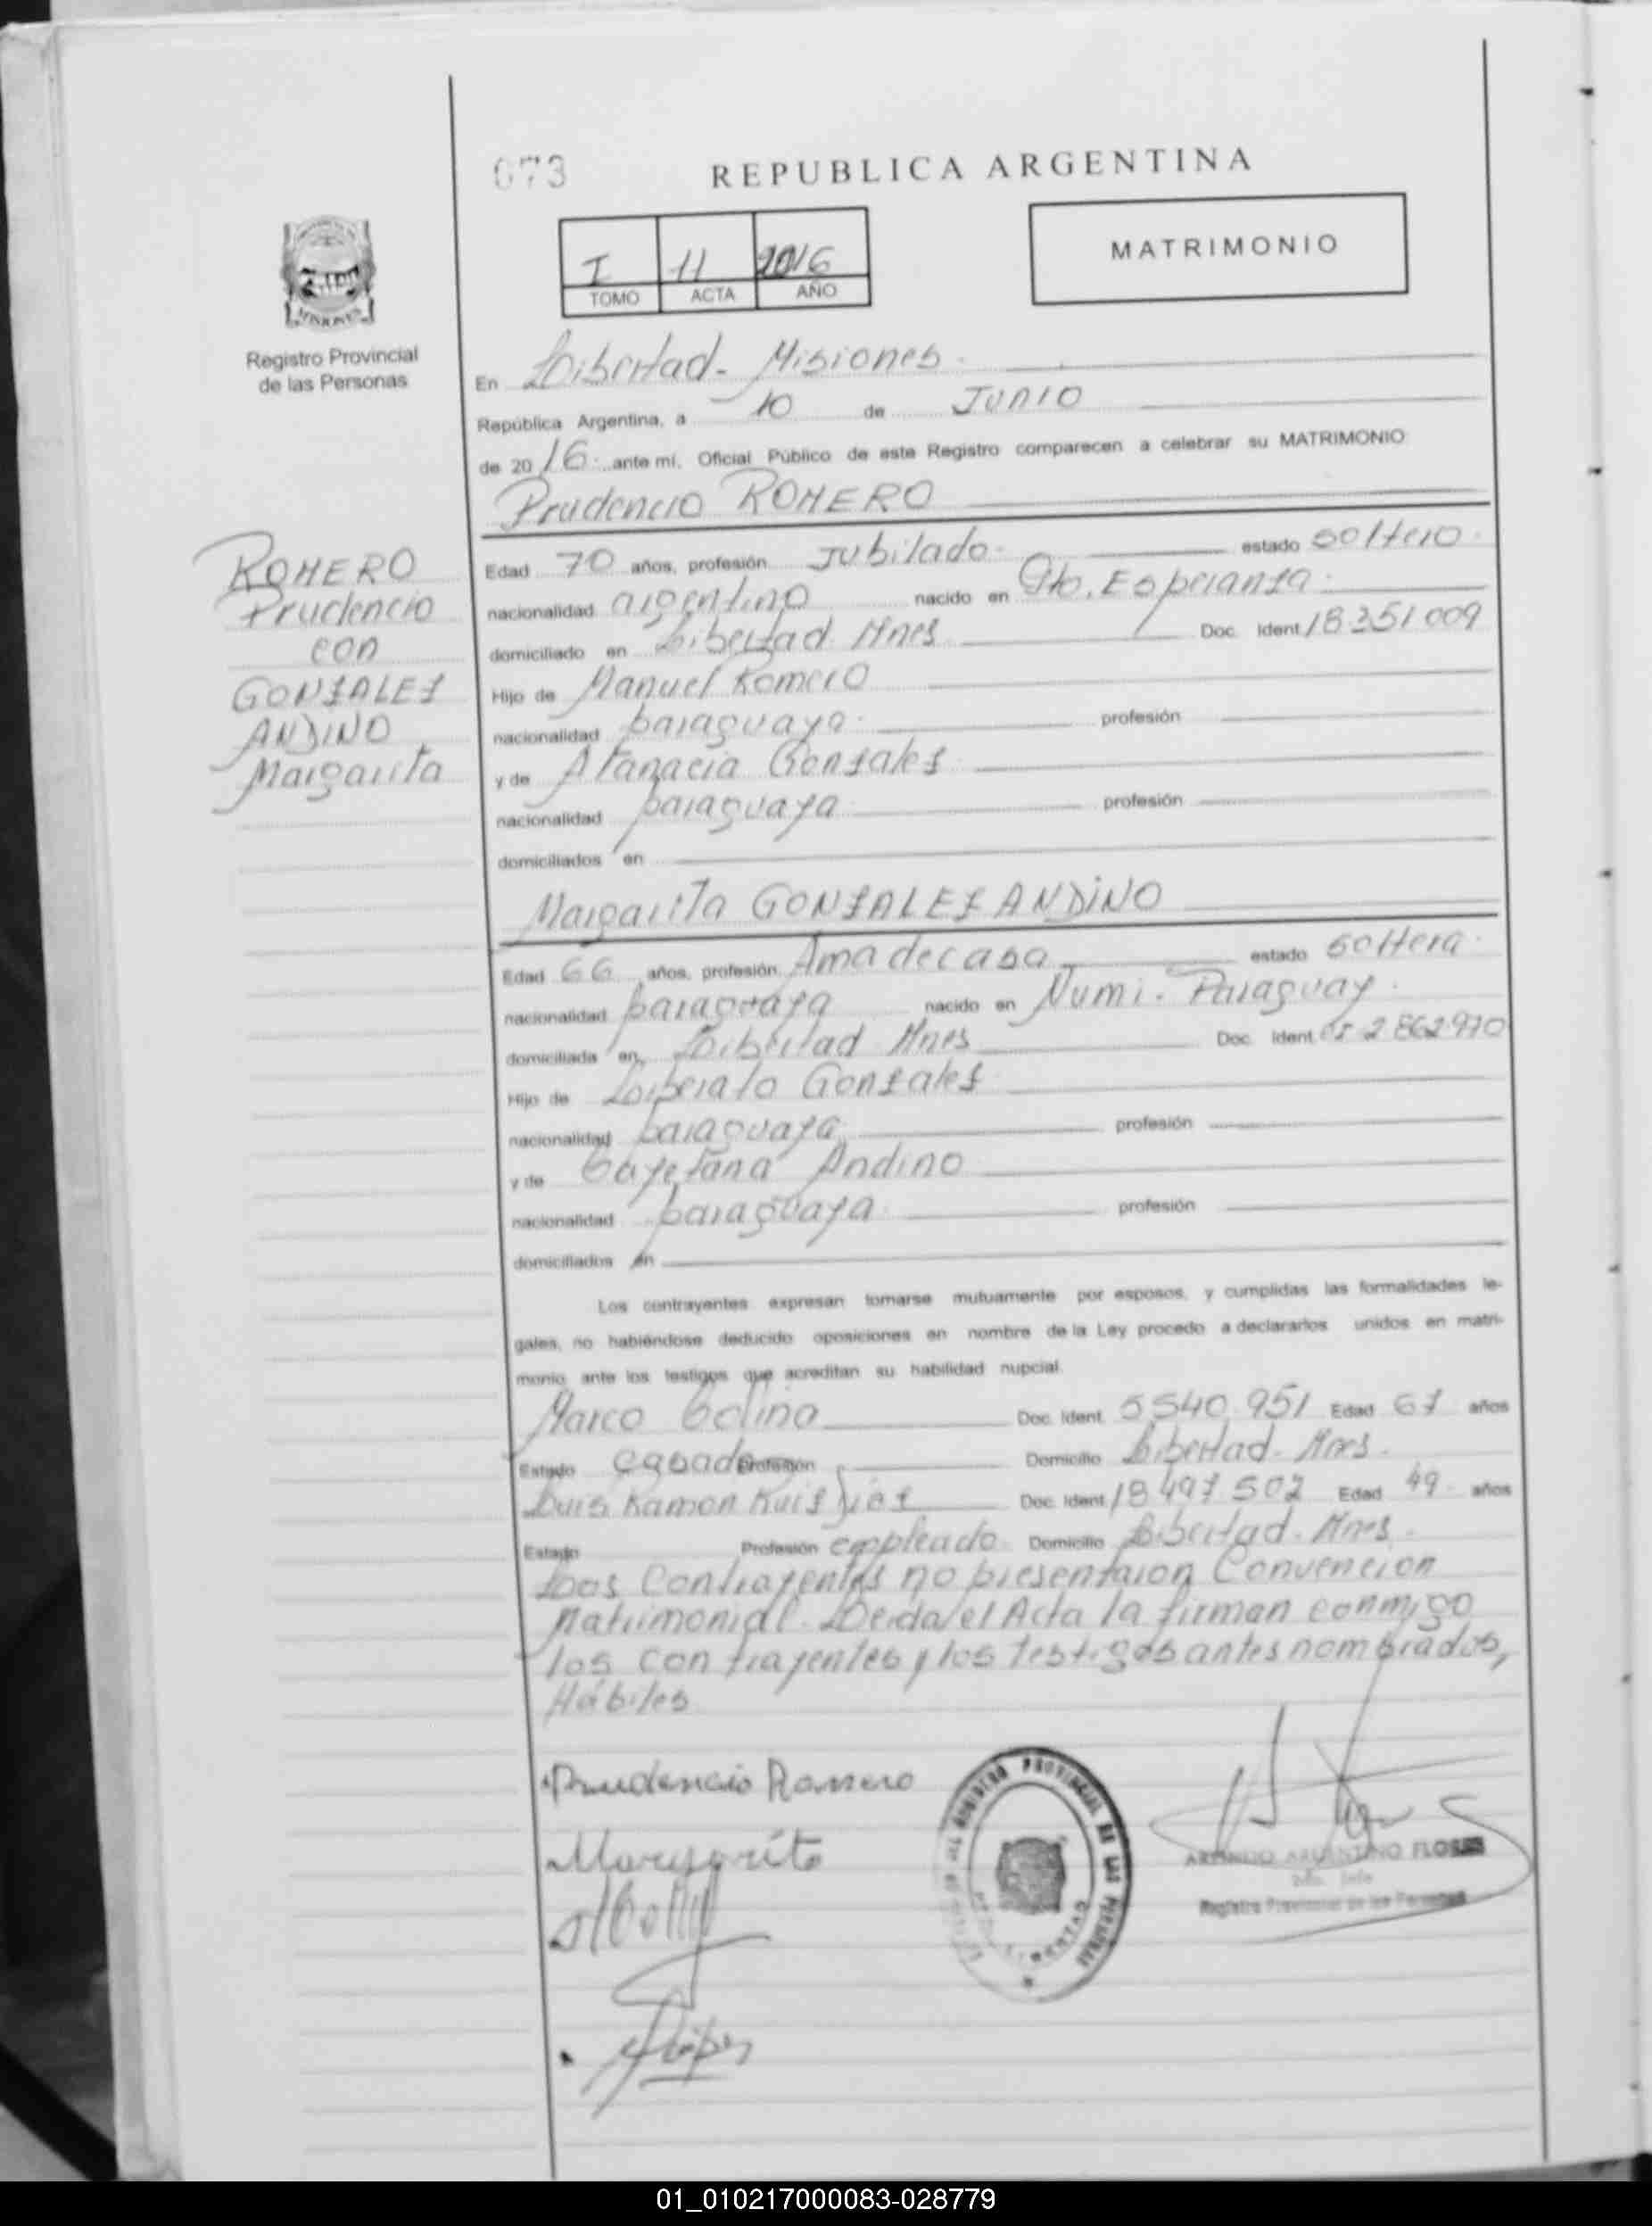 073
REPUBLICA ARGENTINA
I 11 2016
TOMO ACTA AÑO
MATRIMONIO
MISIONES
Registro Provincial
de las Personas
En Libertad - Misiones
República Argentina, a 10 de JUNIO
de 2016 ante mí, Oficial Público de este Registro comparecen a celebrar su MATRIMONIO
Prudencio ROMERO
ROMERO
Prudencio
con
GONZALEZ
ANDINO
Margarita
Edad 70 años, profesión Jubilado estado soltero
nacionalidad argentino nacido en Pto. Esperanza
domiciliado en Libertad Mnes Doc. Ident. 18.351.009
Hijo de Manuel Romero
nacionalidad paraguaya profesión
y de Atanacia Gonzalez
nacionalidad paraguaya profesión
domiciliados en
Margarita GONZALEZ ANDINO
Edad 66 años, profesión Ama de casa estado soltera
nacionalidad paraguaya nacido en Ñumi. Paraguay
domiciliada en Libertad Mnes Doc. Ident. 2862970
Hijo de Liberato Gonzalez
nacionalidad paraguaya profesión
y de Cayetana Andino
nacionalidad paraguaya profesión
domiciliados en
Los contrayentes expresan tomarse mutuamente por esposos, y cumplidas las formalidades le-
gales, no habiéndose deducido oposiciones en nombre de la Ley procedo a declararlos unidos en matri-
monio ante los testigos que acreditan su habilidad nupcial.
Marco Colina Doc. Ident. 5540.951 Edad 67 años
Estado casado Profesión Domicilio Libertad - Mnes.
Luis Ramon Ruiz Diaz Doc. Ident. 18 497 502 Edad 49 años
Estado Profesión empleado Domicilio Libertad - Mnes.
Los Contrayentes no presentaron Convencion
Matrimonial. Leida el Acta la firman conmigo
los contrayentes y los testigos antes nombrados,
Hábiles
Prudencio Romero
Margarita
REGISTRO PROVINCIAL DE LAS PERSONAS
LIBERTAD
ARGENTINO FLORES
Registro Provincial de las Personas
01_010217000083-028779